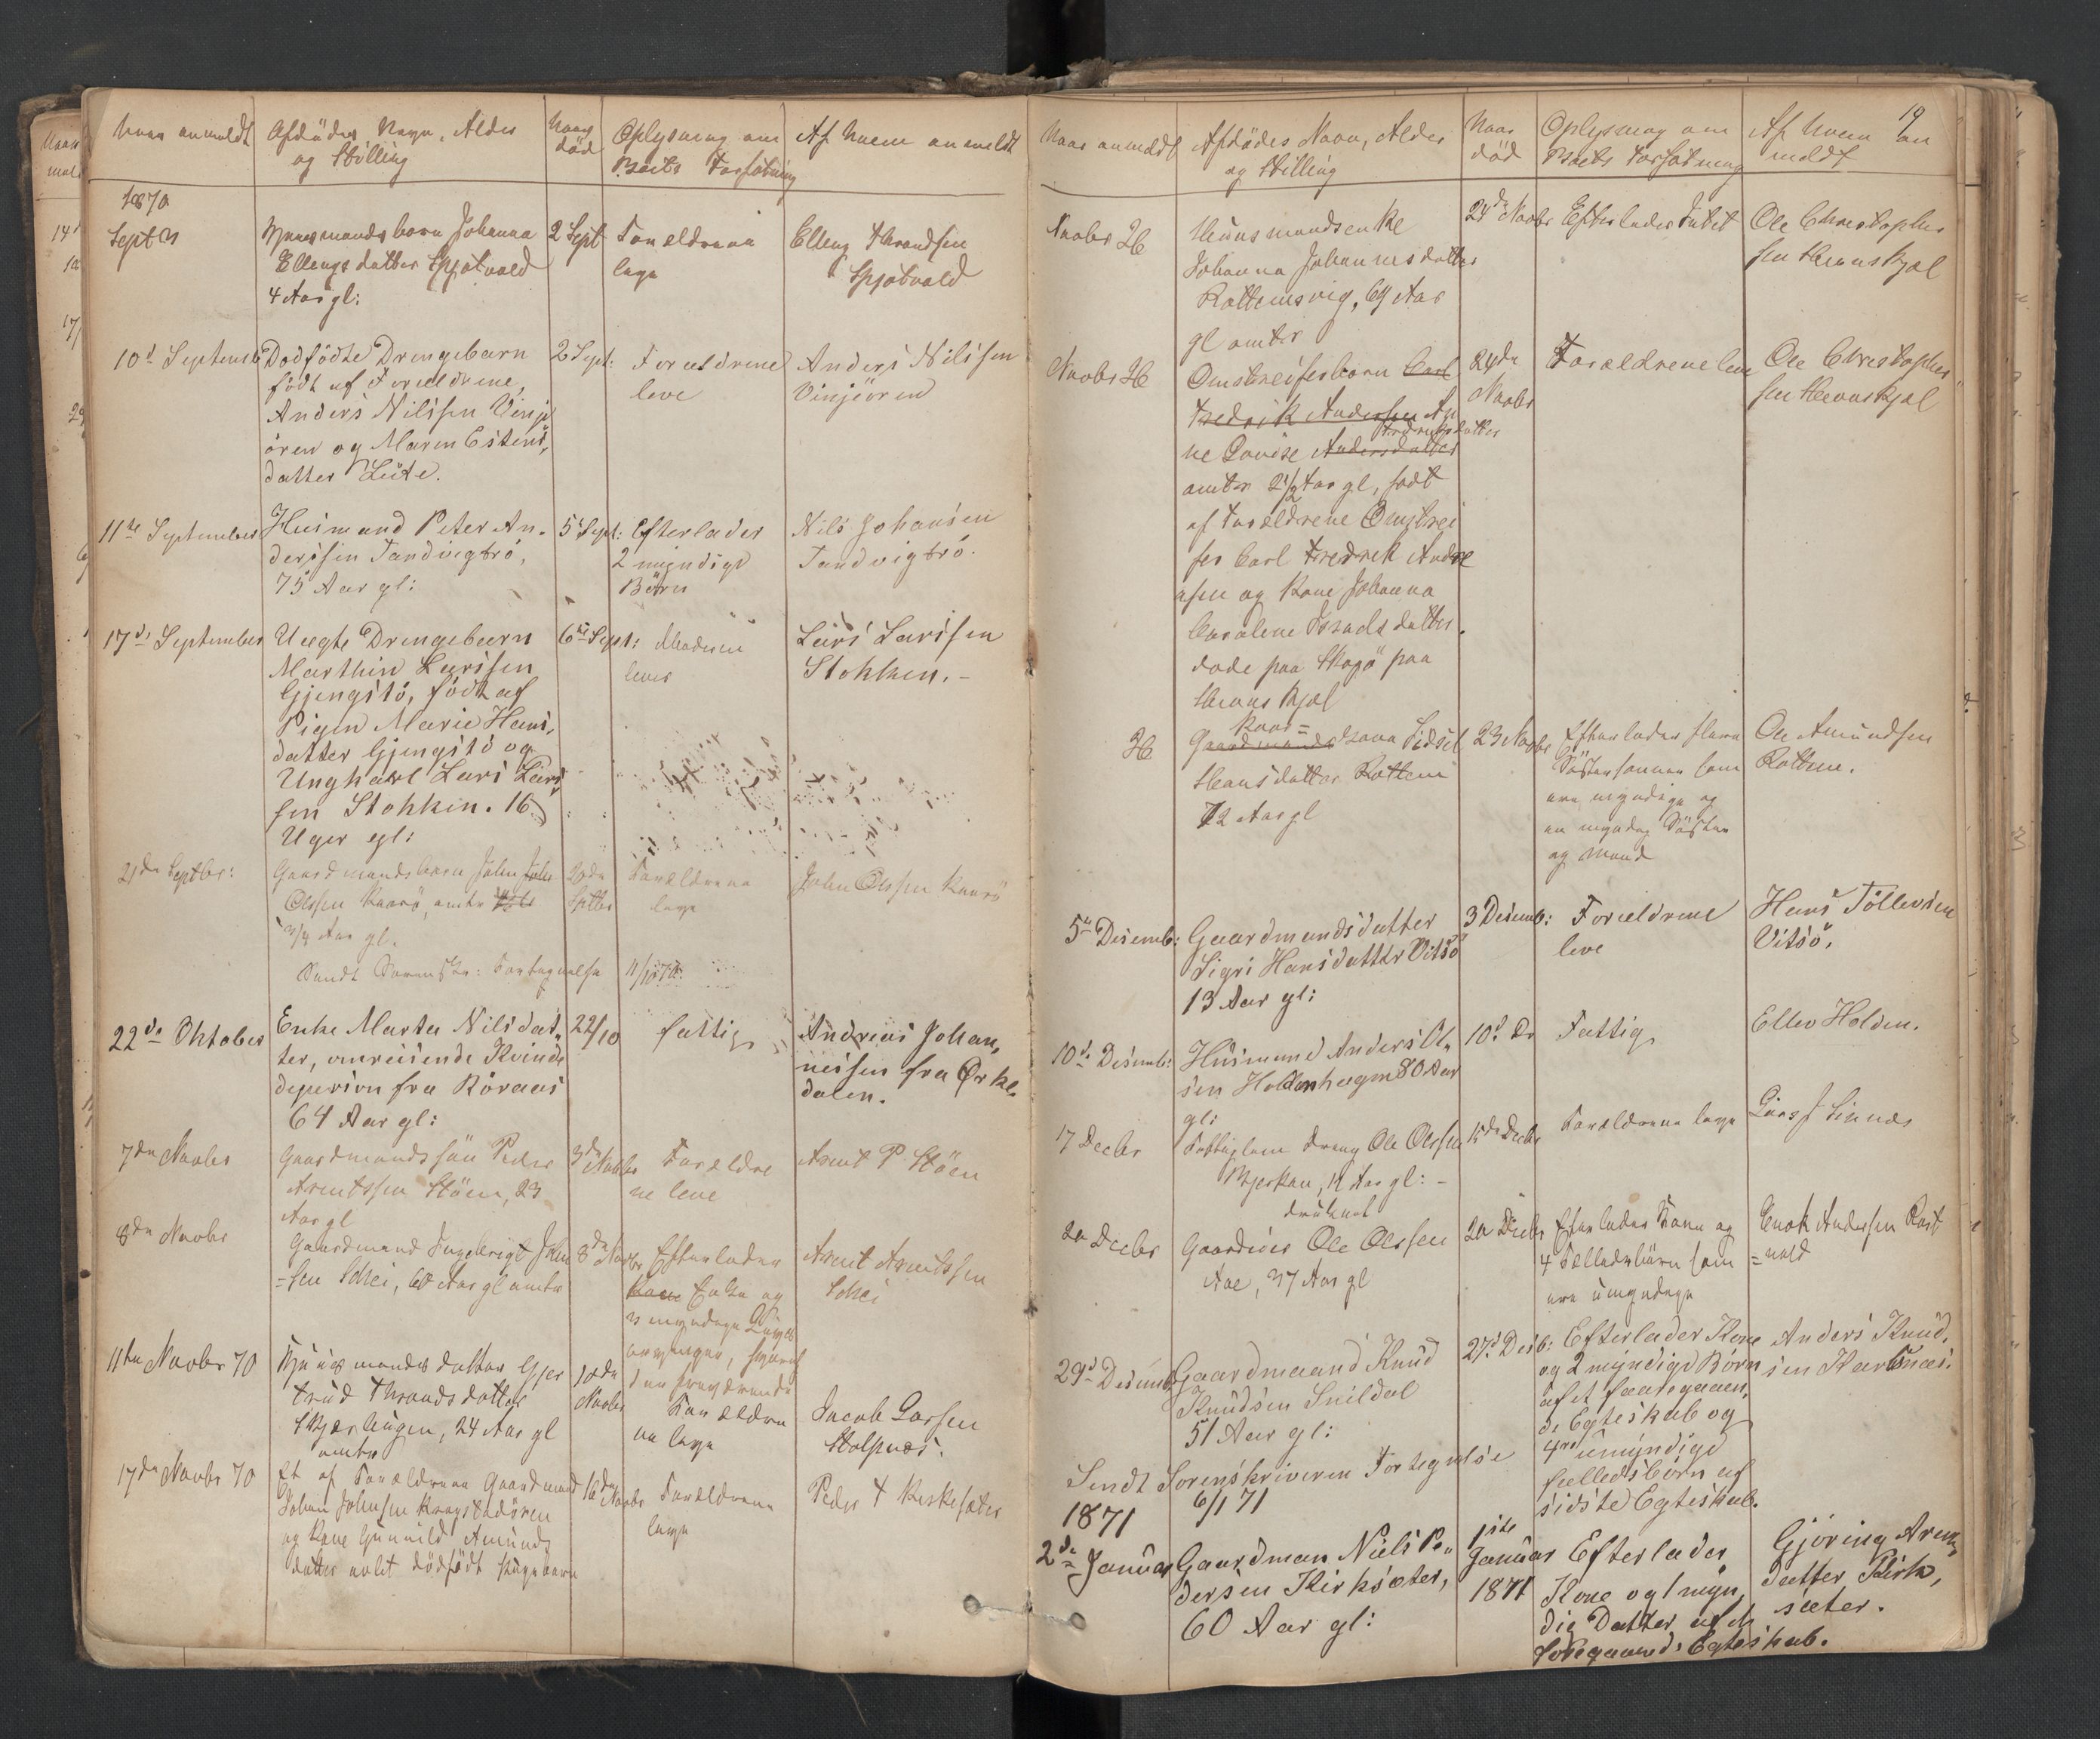 Naar anmeldt
Afdödes Navn, Alder
og Stilling
Naar
död
Oplysning om
Boets Forfatning
Af hvem anmeldt
1870
Sept 3
Huusmandsbarn Johanna
Ellengsdatter Spjøtvold
4 Aar gl:
2 Sept
Forældrene
leve
Elleng Throndsen
Spjøtvold
10d Septemb
Dodfödte Drengebarn
födt af Forældrene,
Anders Nilssen Vinje
ören og Maren Estens,
datter Lute.
2 Sept:
Forældrene
leve
Anders Nilssen
Vinjeören
11te September
Husmand Peter An-
derssen Tandvigtrö,
75 Aar gl:
5 Sept:
Efterlader
2 myndige
Börn
Nils Johansen
Tandvigtrö.
17de September
Uægte Drengebarn
Marthin Larssen
Gjengstö, födt af
Pigen Marie Hans,
datter Gjengstö og
Ungkarl Lars Lars
sen Stokken. 16
Uger gl:
6te Sept:
Moderen
lever
Lars Larssen
Stokken. -
21de Septbr:
Gaardmandsbarn John John
Olssen Kaarö, omtr
3/4 Aar gl.
20de
Septbr
Forældrene
leve
John Olssen Kaarö
Sendt Sorenskr: Fortegnelse 11/10 70.
22de Oktober
Enke Marta Nilsdat,
ter, omreisende Kvinde
deperson fra Röraas
64 Aar gl:
22/10
fattig
Andreas Johan,
nessen fra Örke-
dalen.
7de Novbr
Gaardmandssön Peder
Arentssen Stöen, 23
Aar gl
3de
Novbr
Forældre
ne leve
Arent P. Stöen
8de Novbr
Gaardmand Ingebrigt John
=sen Schei, 60 Aar gl omtr
3de Novbr
Efterlader
Kone Enke og
3 myndige
Arent Arentssen
Schei
11te Novbr 70
Huusmandsdatter Gjer
trud Throndsdatter
Skjærhaugen, 24 Aar gl
omtr
10de
Novbr
Forældre
ne leve
Jacob Larsen
Stolpnæs.
17de Novbr 70
Et af Forældrene Gaardmand
Johan Johnsen
og Kone Gunnild Amunds
datter avlet dödfödt Pigebarn
16de
Novbr
Forældrene
leve
Peder T Kirksæter
19
Naar anmeldt
Afdödes Navn, Alder
og Stilling
Naar
död
Oplysning om
Boets Forfatning
Af hvem an
meldt
Novbr 26
Huusmandsenke
Johanna Johannesdatter
Rottemsvig, 69 Aar
gl omtr
24de Novbr
Efterlader Intet
Ole Christopher
sen Hevnskjel
Novbr 26
Omstreiferbarn Carl
Fredrik Andersen An
Fredriksdatter
ne Lovise Andersdatter
omtr 2 1/2 Aar gl, födt
af Forældrene Omstrei
fer Carl Fredrik Andre
asen og Kone Johanna
Caroline datter.
döde paa Skogö paa
Hevnskjel
24de
Novbr
Forældrene leve
Ole Christopher
sen Hevnskjel
26
Kaar=
Gaardmandskone Sidsel
Hansdatter Rottem
72 Aar gl
23 Novbr
Efterlader flere
Söstersönner som
ere myndige og
en myndig Söster
og Mand
Ole Amundsen
Rottem.
5te Desemb:
Gaardmandsdatter
Sigri Hansdatter Vitsö
13 Aar gl:
3 Desemb:
Forældrene
leve
Hans Tollevsen
Vitsö.
10de Desemb:
Husmand Anders Ol,
sen Holdenhagen 80 Aar
gl:
10d Ds
Fattig
Ellev Holden.
17 Decbr
Fattiglem Dreng Ole Olssen
Bjerkan, 11 Aar gl: -
15de Decbr
Forældrene leve
Lars J Sinnes
20 Decbr
druknet
Gaardeier Ole Olssen
Aae, 37 Aar gl
20 Decbr
Efterlader Kone og
4 Fælledsbörn som
ere umyndige
Enok Andersen Rost
=vold
29d Desemb
Gaardmaand Knud
Knudsen Snildal
51 Aar gl:
27d Desb:
Efterlader Kone
og 2 myndige Börn
af et foregaaen,
de Egteskab og
4re umyndige
fælledsbörn af
sidste Egteskab.
Anders Knud,
sen Karlsnæs.
Sendt Sorenskriveren Fortegnelse
6/1 71
1871
2de Januar
Gaardman Niels Pe,,
dersen Kirksæter,
60 Aar gl:
1ste
Januar
1871
Efterlader
Kone og 1 myn
dig Datter af et
foregaaende Egteskab.
Gjöring Arens
datter Kirk,
sæter.